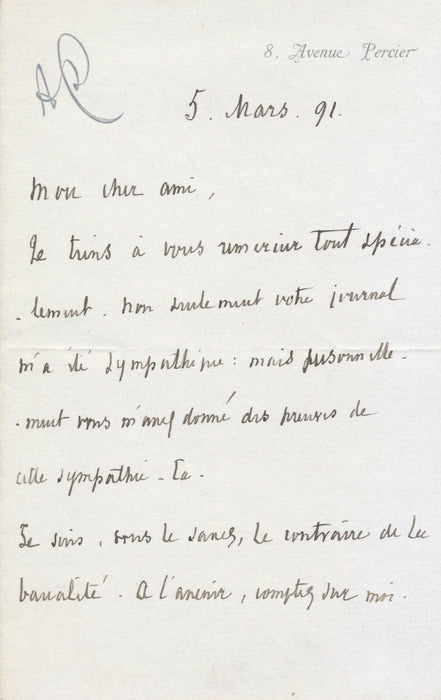 AP
8. Avenue Percier
5. Mars. 91.
Mon cher ami,
Je tiens à vous remercier tout spécia-
-lement. Non seulement votre journal
m'a été sympathique : mais personnelle-
-ment vous m'avez donné des preuves de
cette sympathie -
Je suis, vous le savez, le contraire de la
banalité. A l'avenir, comptez sur moi.